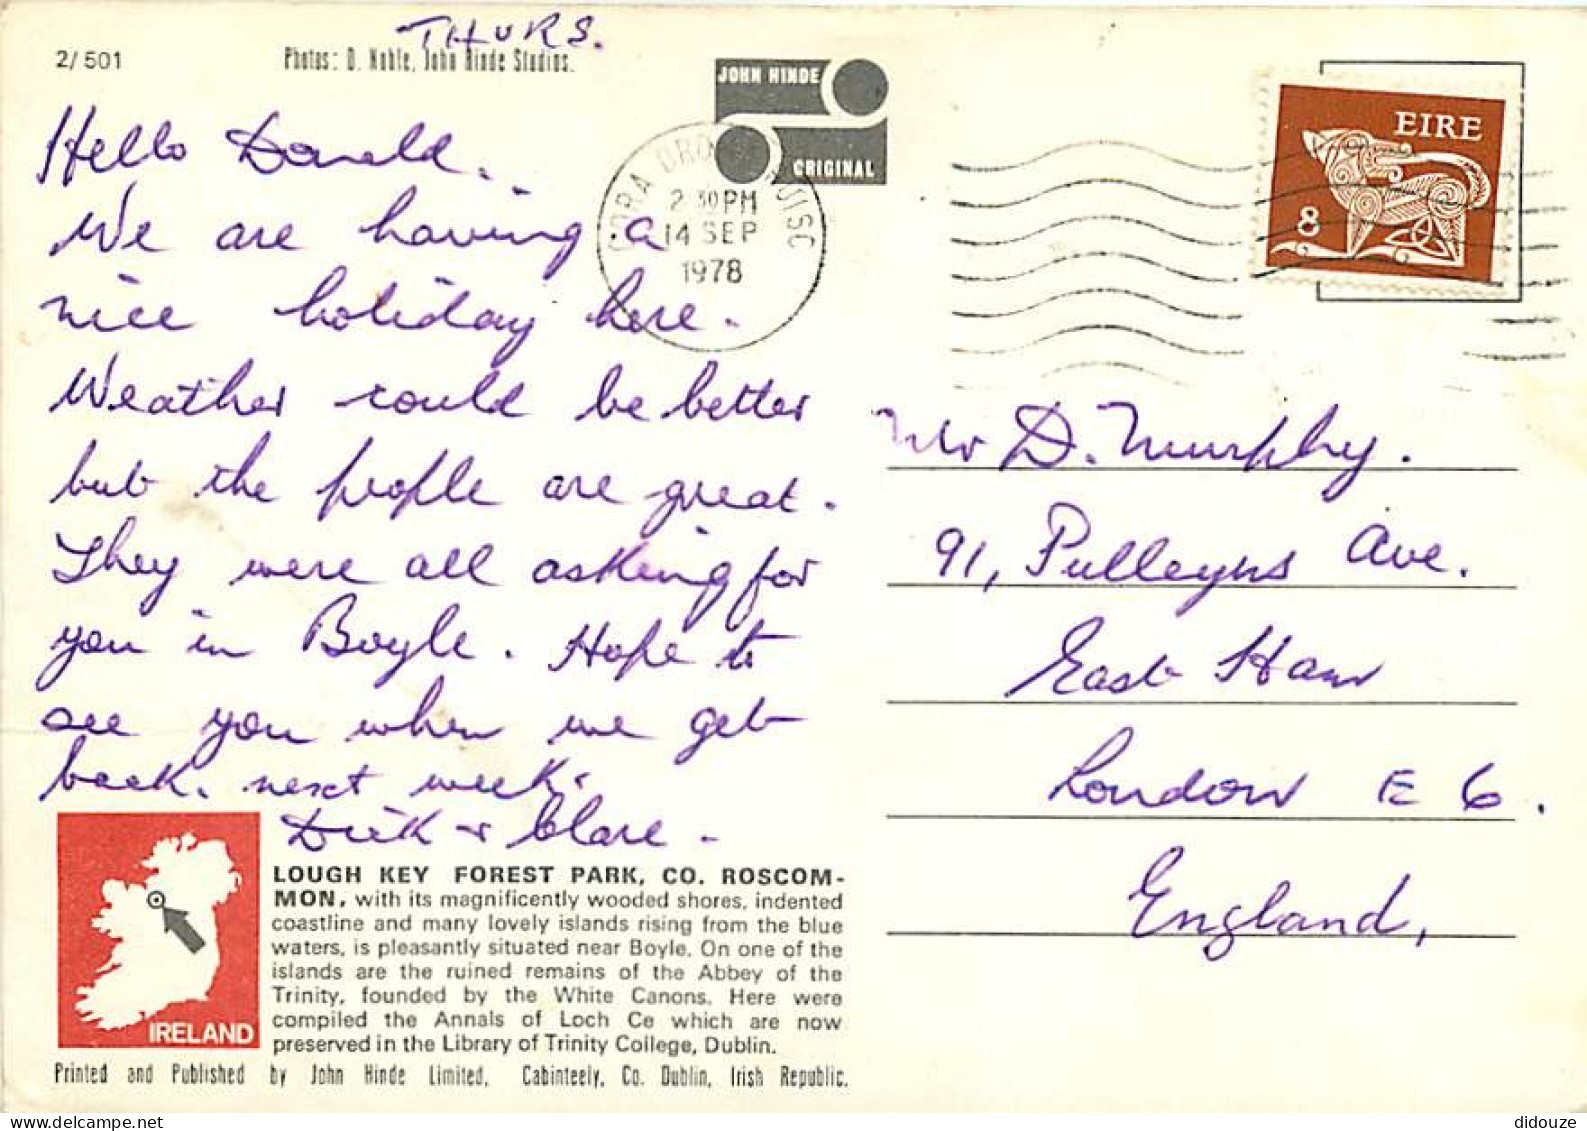 THURS.
2/501
Photos: D. Noble, John Hinde Studios.
JOHN HINDE
ORIGINAL
Hello Donald.
We are having a
nice holiday here.
Weather could be better
but the people are great.
They were all asking for
you in Boyle. Hope to
see you when we get
back. next week.
Dick + Clare.
2 30 PM
14 SEP
1978
EIRE
8
Mr D. Murphy.
91, Pulleyns Ave.
East Ham
London E 6.
England,
IRELAND
LOUGH KEY FOREST PARK, CO. ROSCOM-
MON, with its magnificently wooded shores, indented
coastline and many lovely islands rising from the blue
waters, is pleasantly situated near Boyle. On one of the
islands are the ruined remains of the Abbey of the
Trinity, founded by the White Canons. Here were
compiled the Annals of Loch Ce which are now
preserved in the Library of Trinity College, Dublin.
Printed and Published by John Hinde Limited, Cabinteely, Co. Dublin, Irish Republic.
didouze